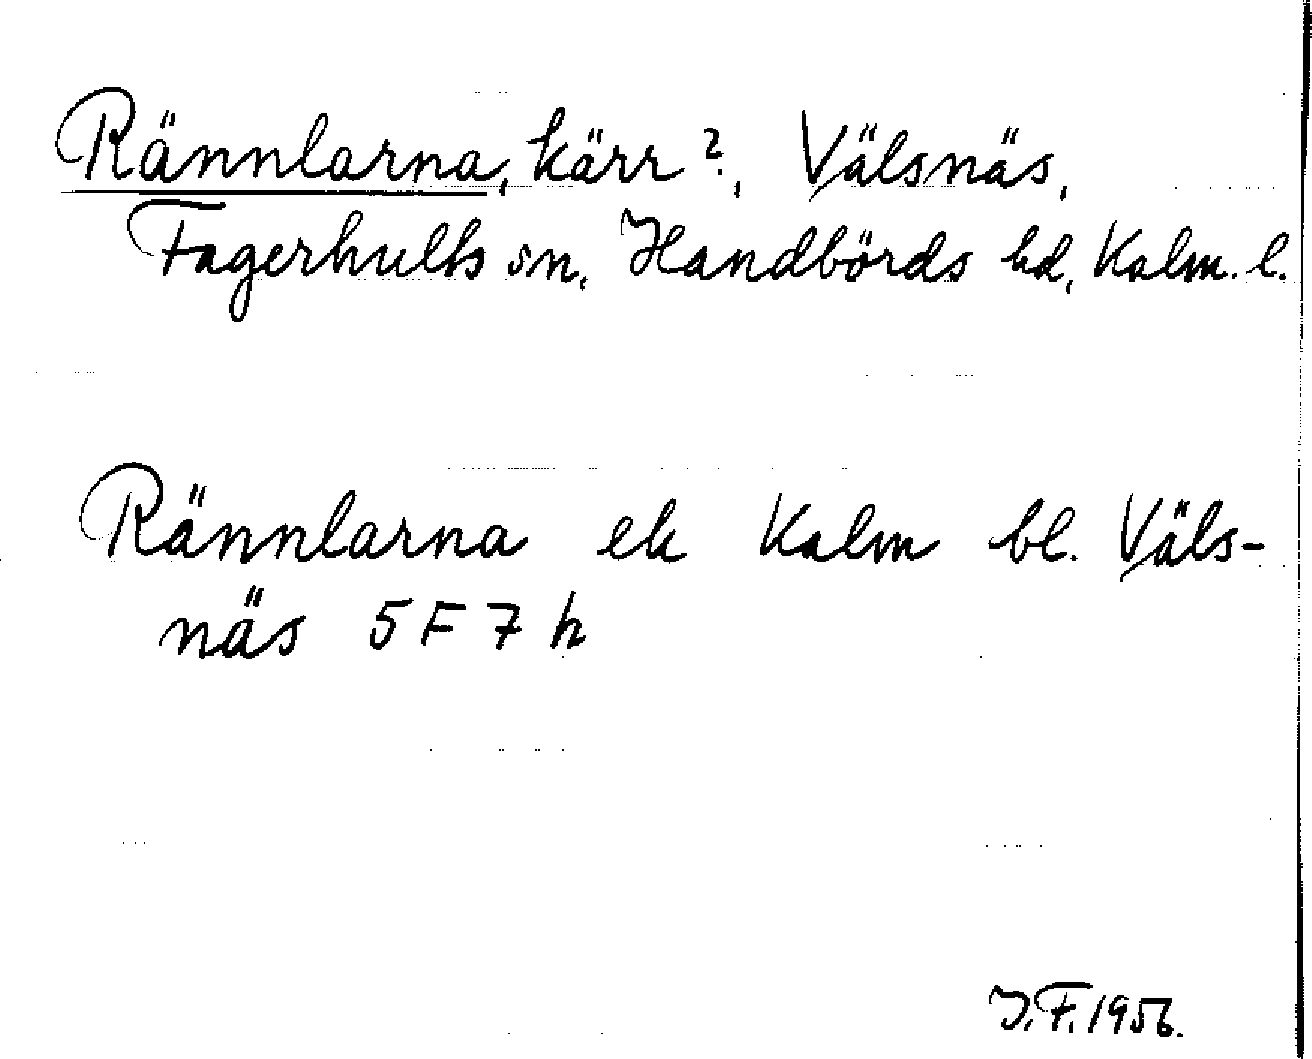 Rännlarna, kärr?, Välsnäs,
Fagerhults sn, Handbörds hd, Kalm. l.
Rännlarna ek Kalm bl. Väls-
näs 5 F 7 h
J.F. 1956.